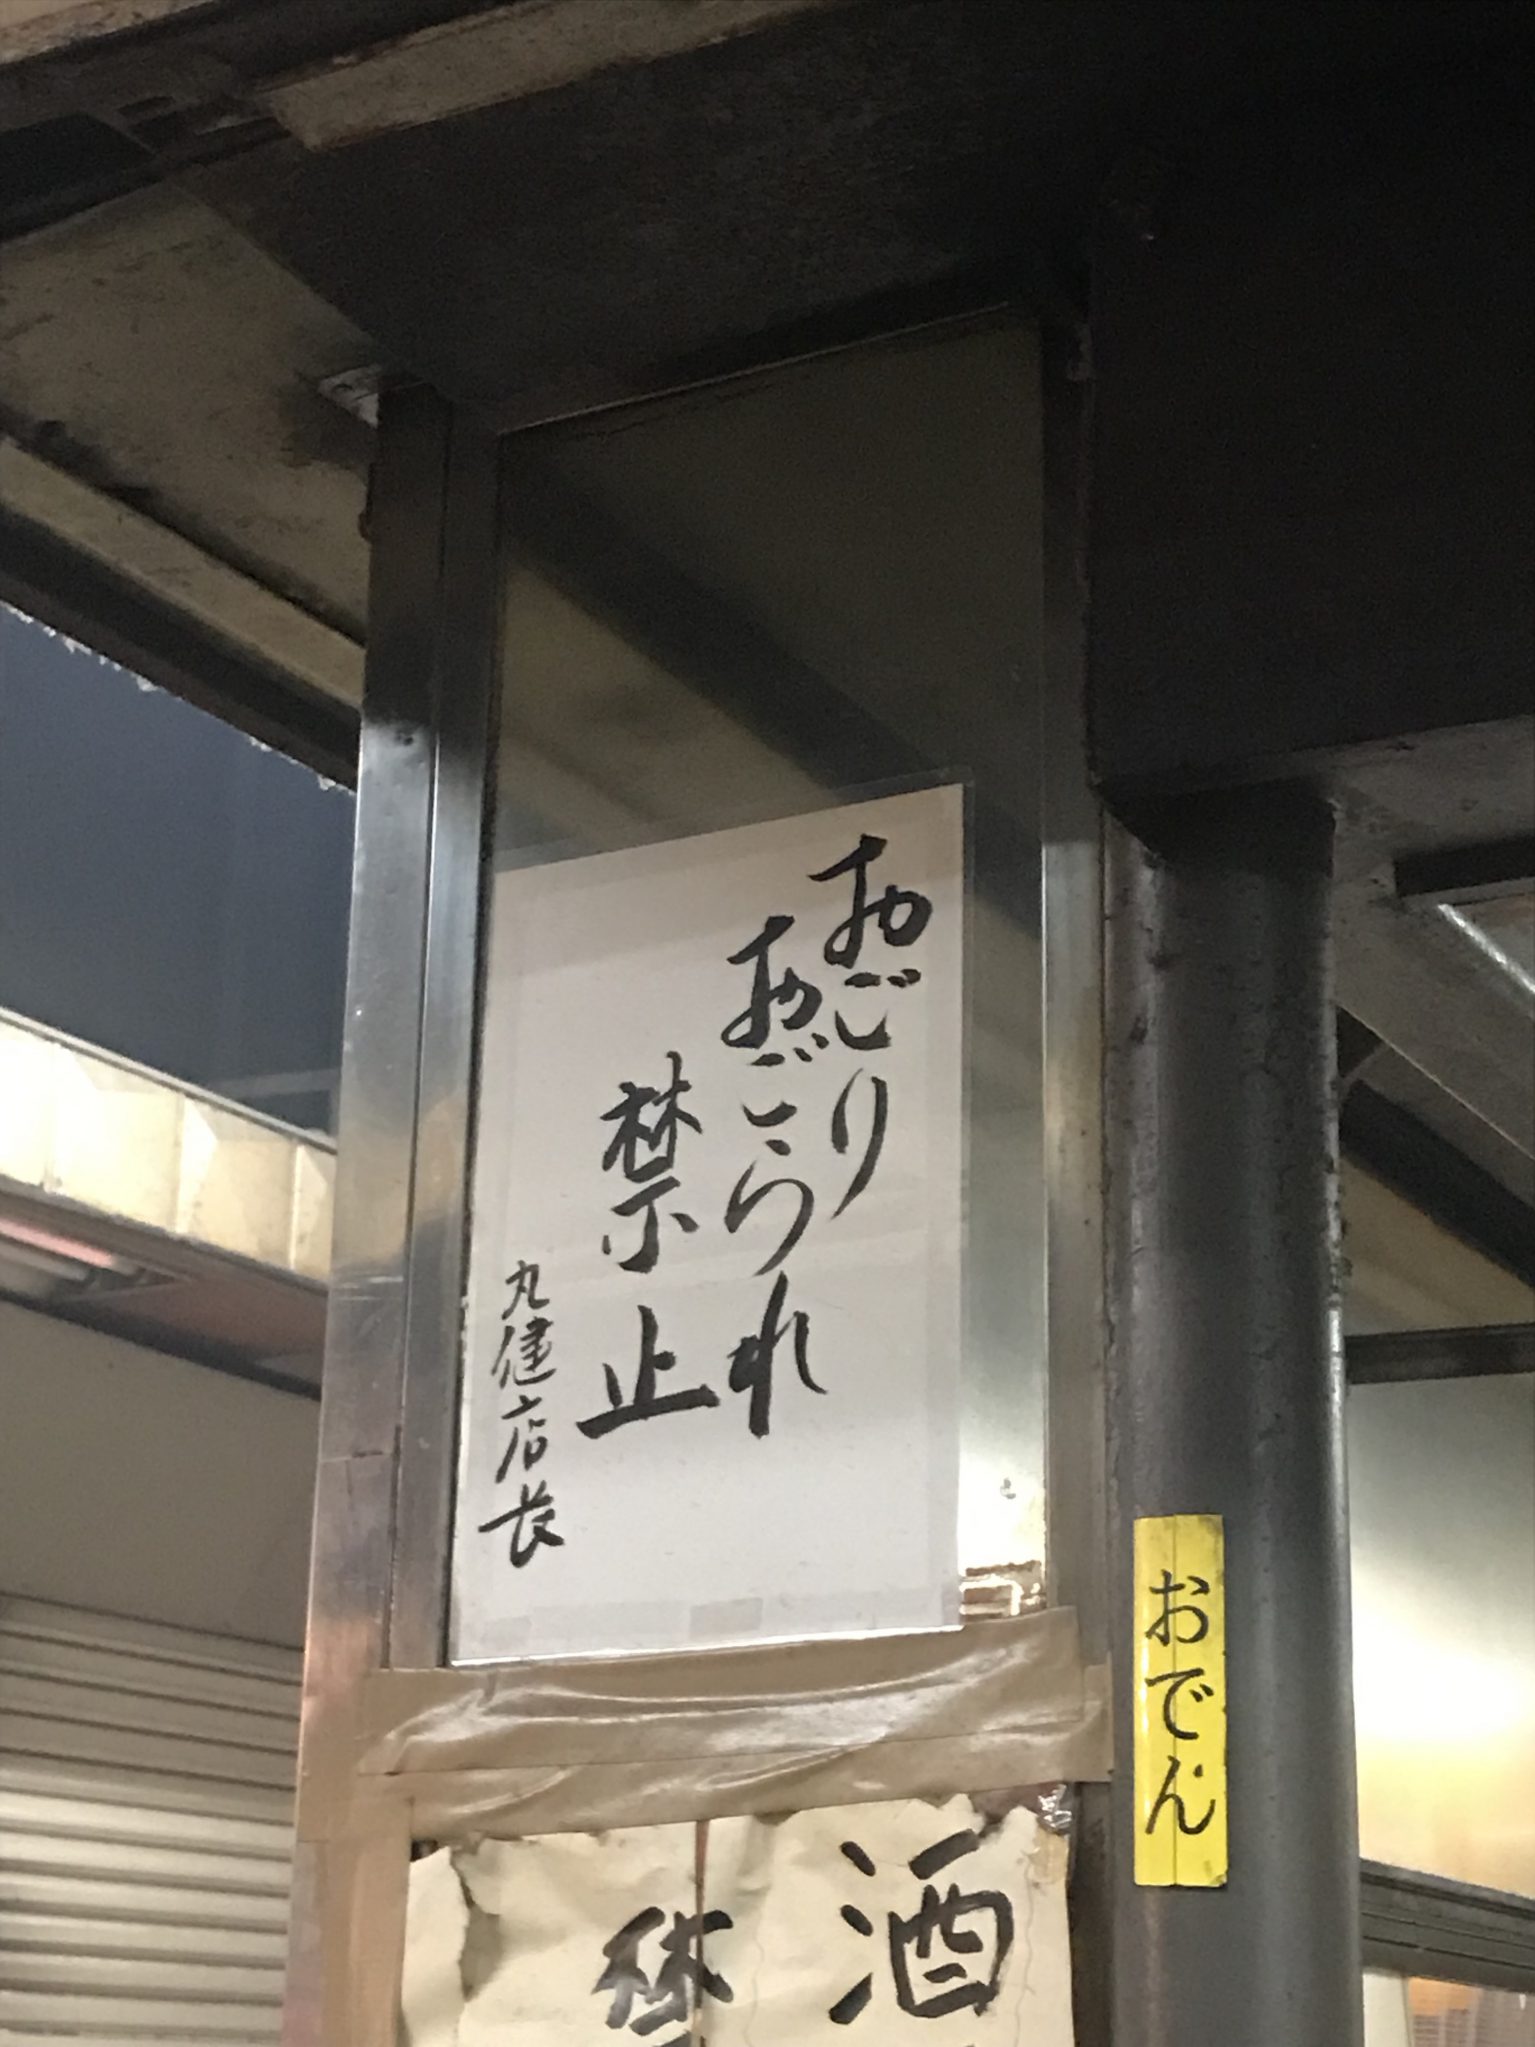 おごり
おごられ
禁止
丸健店長
おでん
酒
禁